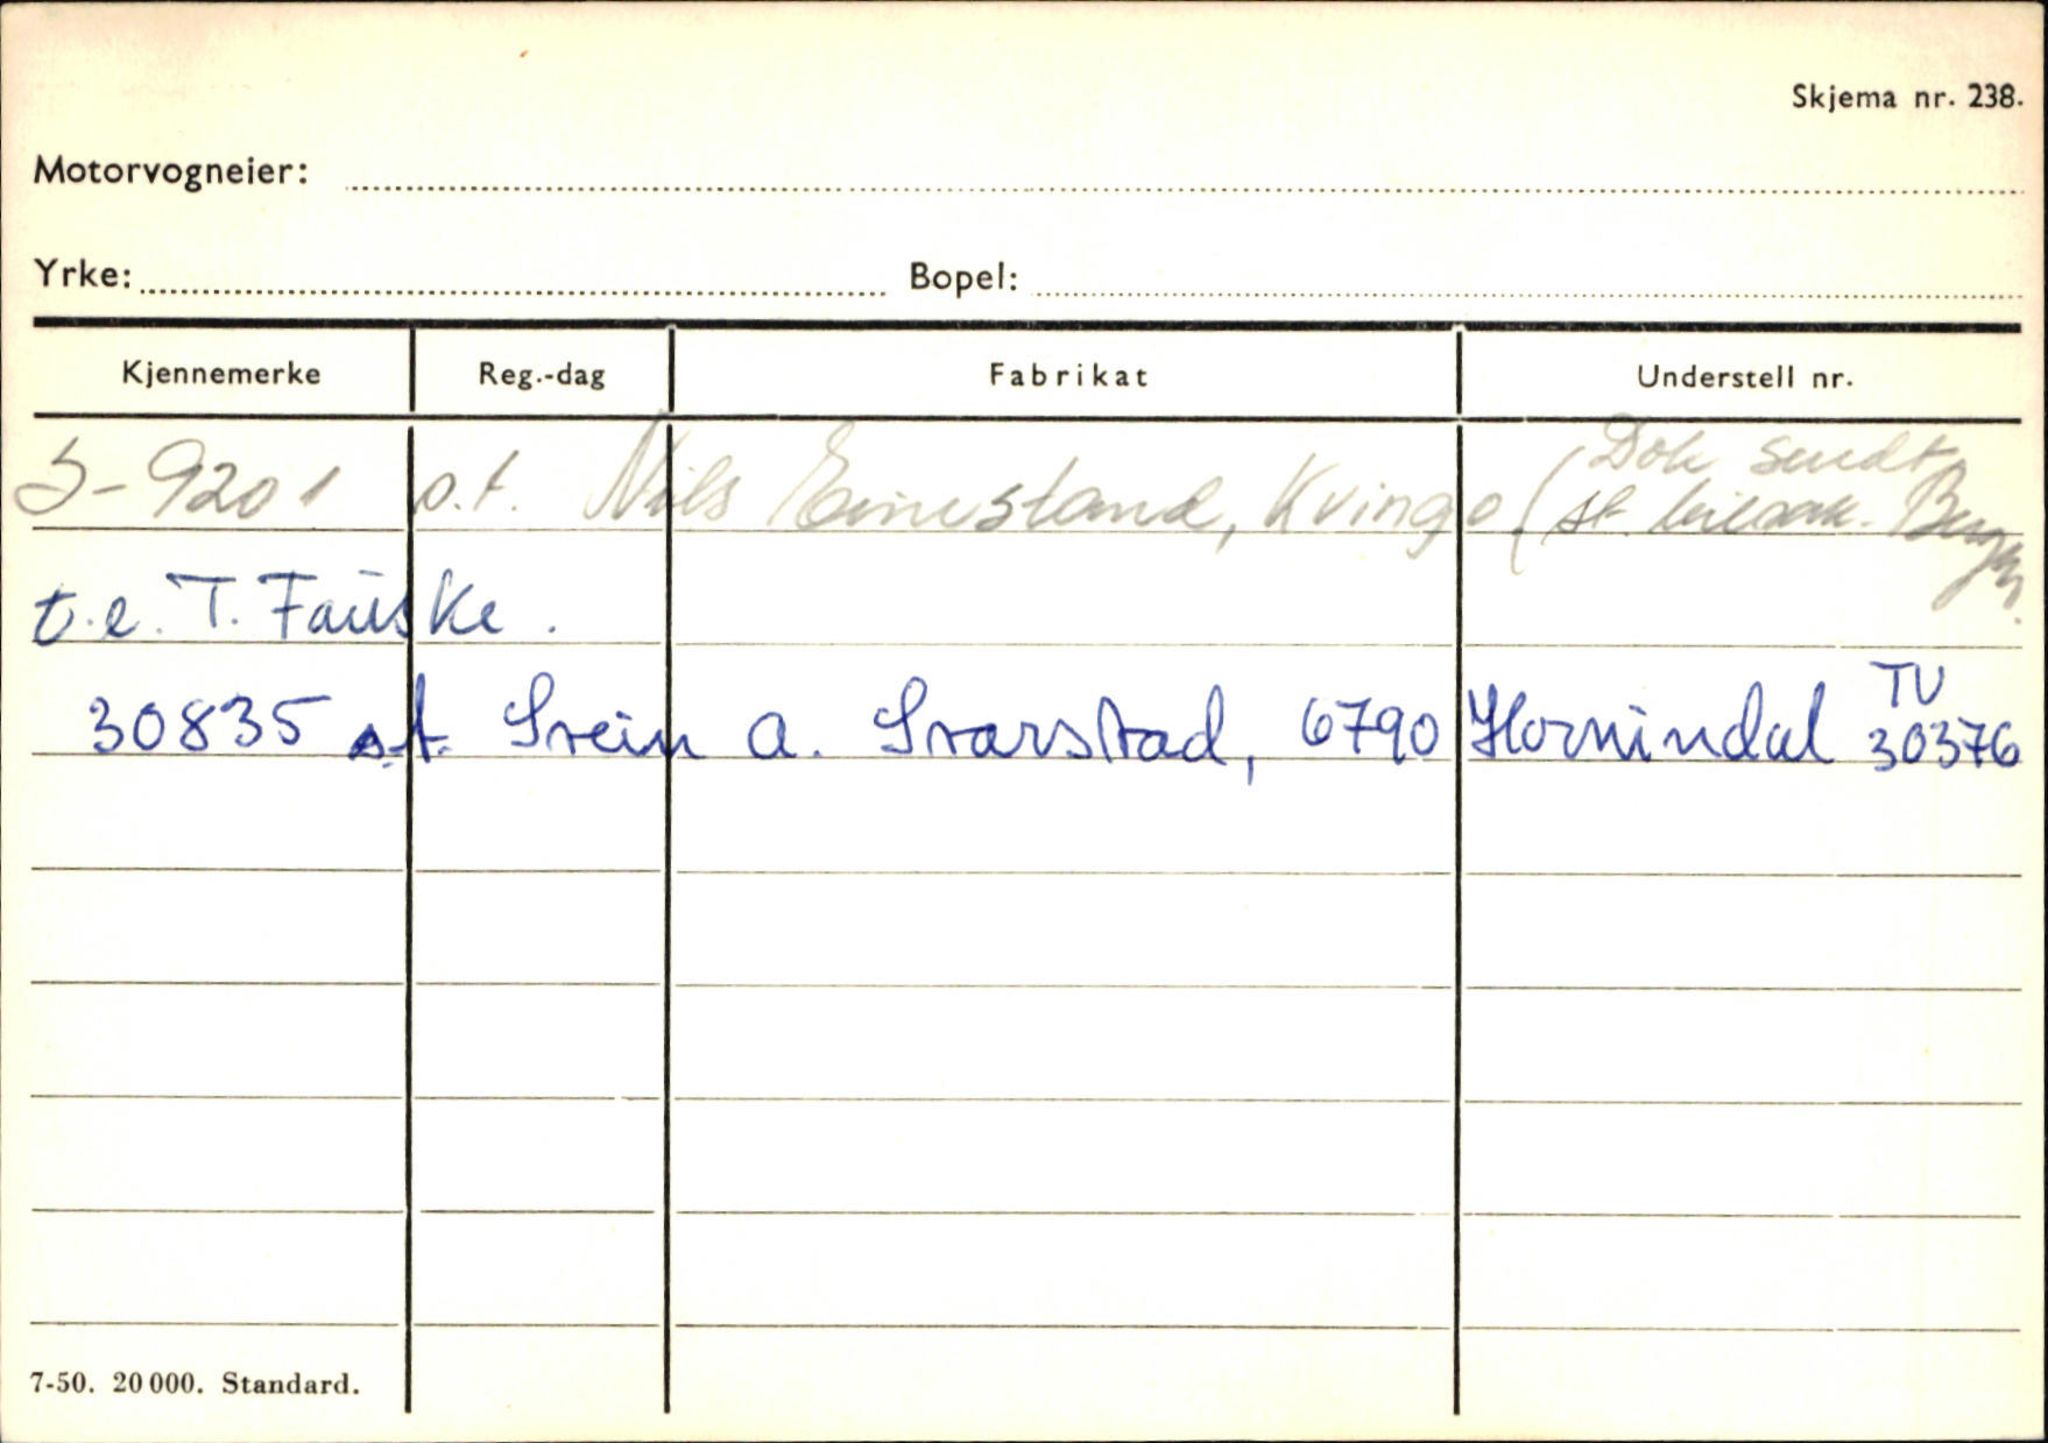 Skjema nr. 238.
Motorvogneier:
Yrke: Bopel:
Kjennemerke Reg.-dag Fabrikat Understell nr.
S-9201 o.t. Nils Einestand, Kvingo (Dok sendt
st. bilsak. Bergen.
t.e. T. Fauske.
30835 s.t. Svein A. Svarstad, 6790 Hornindal TU
30376
7-50. 20 000. Standard.